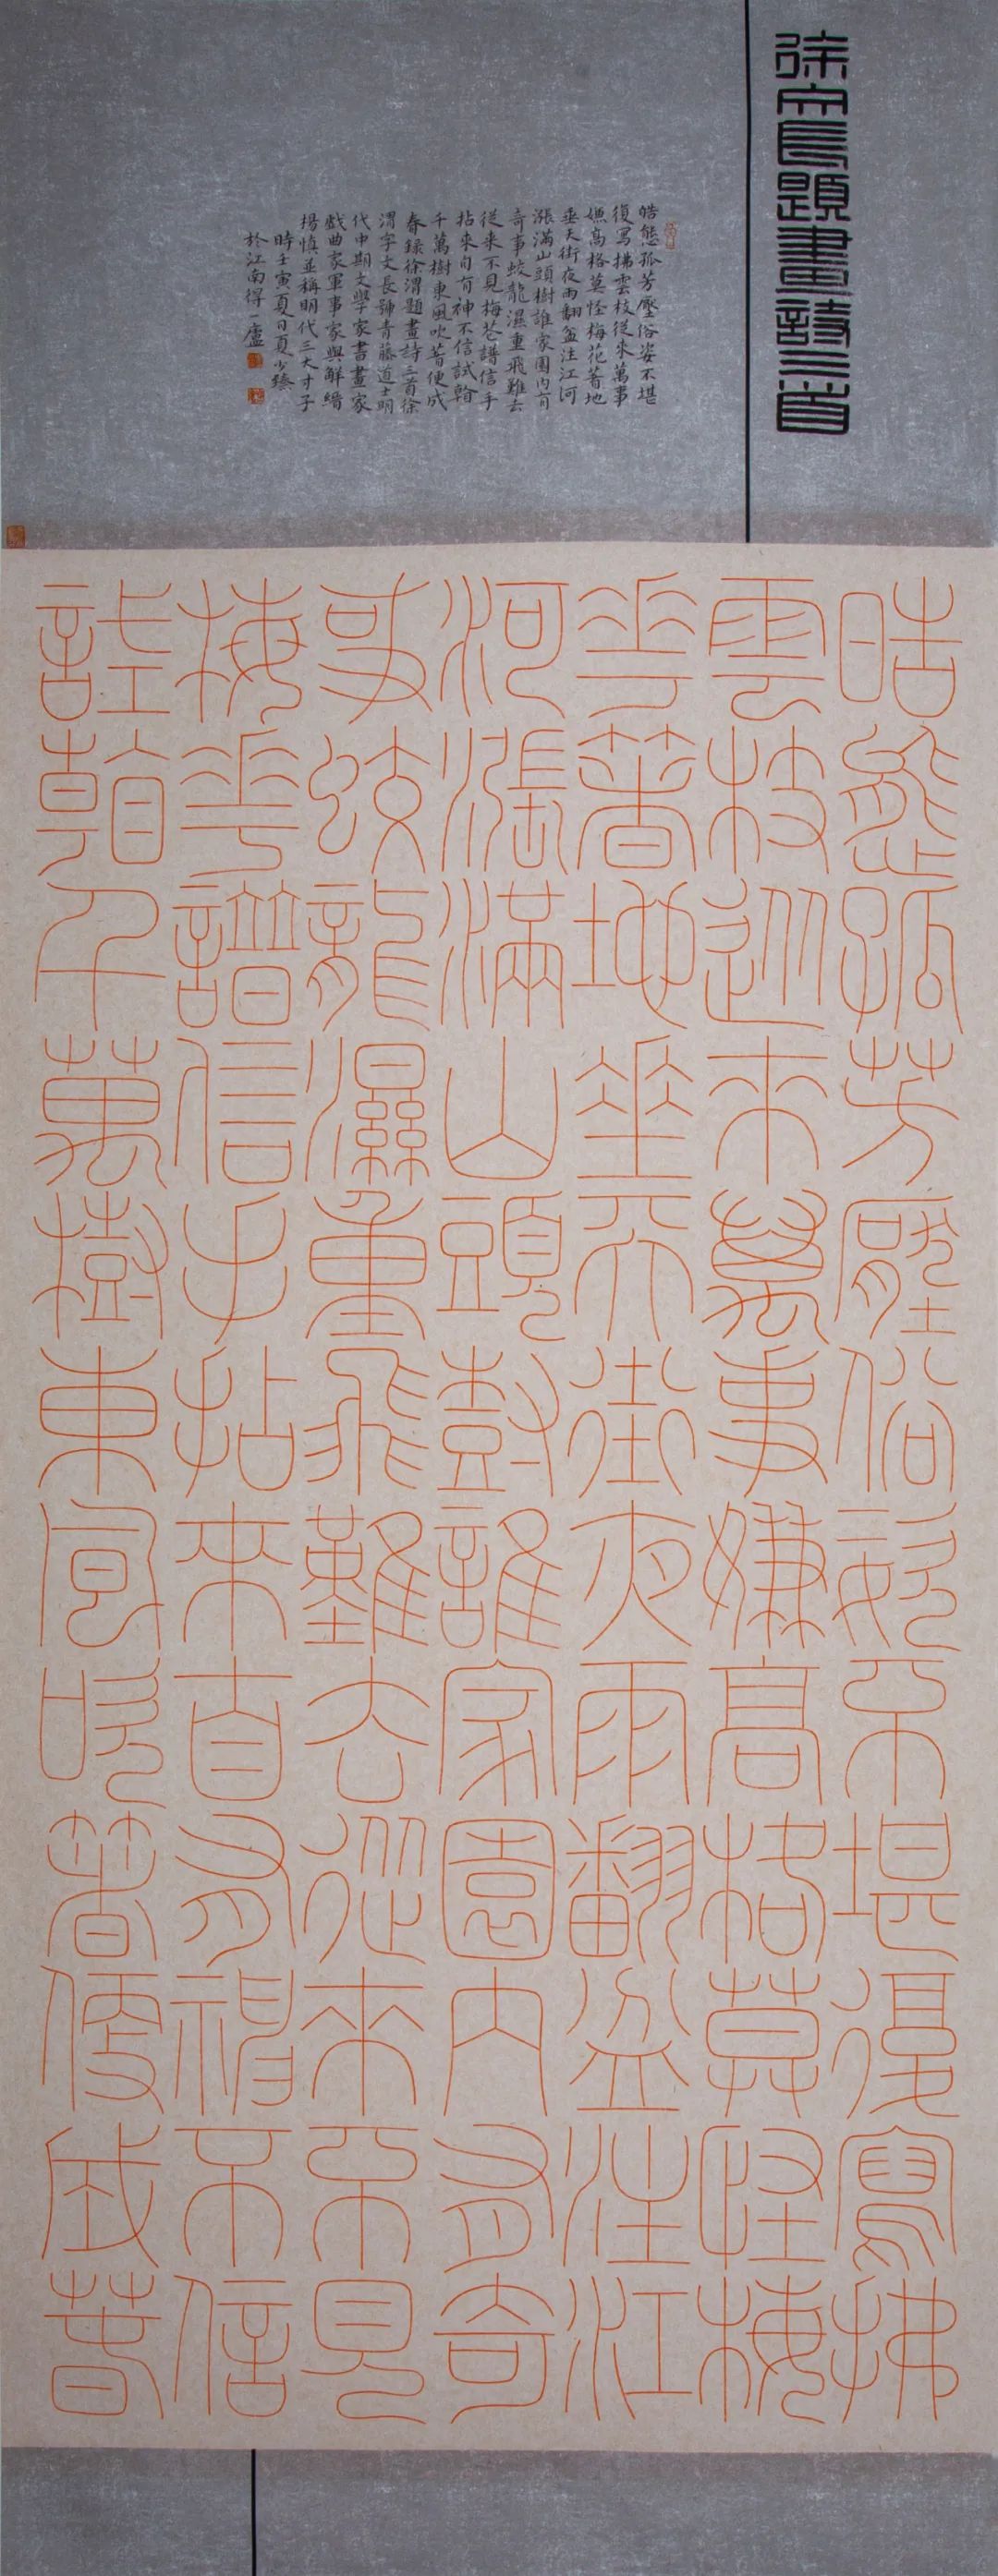 徐文長題畫詩三首
皓態孤芳壓俗姿不堪
復寫拂雲枝從來萬事
嫌高格莫怪梅花著地
垂天街夜雨翻盆注江河
漲滿山頭樹誰家園內有
奇事蛟龍濕重飛難去
從來不見梅花譜信手
拈來自有神不信試翰
千萬樹東風吹著便成
春錄徐渭題畫詩三首徐
渭字文長號青藤道士明
代中期文學家書畫家
戲曲家軍事家與解縉
楊慎並稱明代三大才子
時壬寅夏日夏少臻
於江南得一廬
皓態孤芳壓俗姿不堪復寫拂
雲枝從來萬事嫌高格莫怪梅
花著地垂天街夜雨翻盆注江
河漲滿山頭樹誰家園內有奇
事蛟龍濕重飛難去從來不見
梅花譜信手拈來自有神不信
試翰千萬樹東風吹著便成春